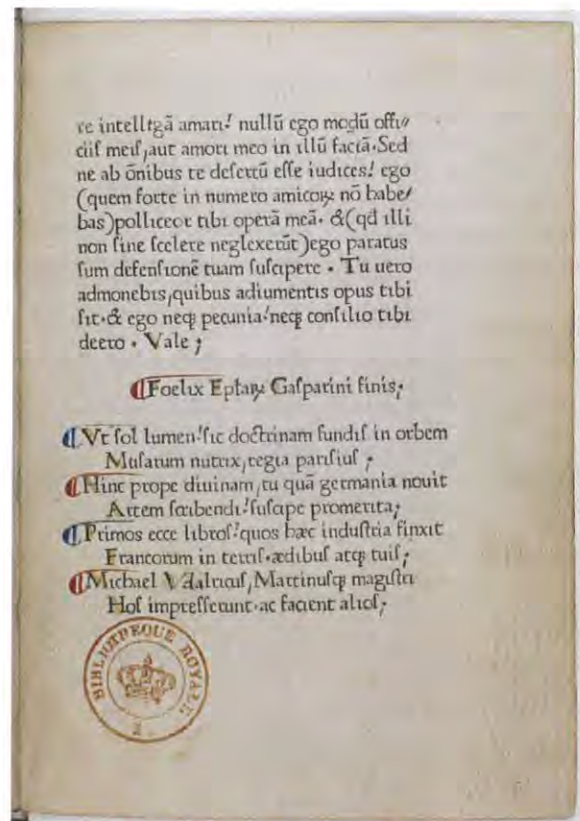 re intelligā amari! nullū ego modū offi⸗
ciiſ meiſ, aut amori meo in illū faciā. Sed
ne ab ōnibus te deſertū eſſe iudices! ego
(quem forte in numero amicoꝝ nō habe/
bas) polliceor tibi operā meā. & (qđ illi
non ſine ſcelere neglexerūt) ego paratus
ſum defenſionē tuam ſuſcipere . Tu uero
admonebis, quibus adiumentis opus tibi
ſit. & ego neqꝫ pecunia! neqꝫ conſilio tibi
deero . Vale ;
Foelix Epľaꝝ Gaſparini finis;
Vt ſol lumen! ſic doctrinam fundiſ in orbem
Muſarum nutrix, regia pariſiuſ ;
Hinc prope diuinam, tu quā germania nouit
Artem ſcribendi! ſuſcipe promerita;
Primos ecce libroſ! quos hæc induſtria finxit
Francorum in terriſ. ædibus atqꝫ tuiſ ;
Michael Vdalricuſ, Martinuſqꝫ magiſtri
Hoſ impreſſerunt. ac facient alioſ ;
BIBLIOTHEQUE ROYALE